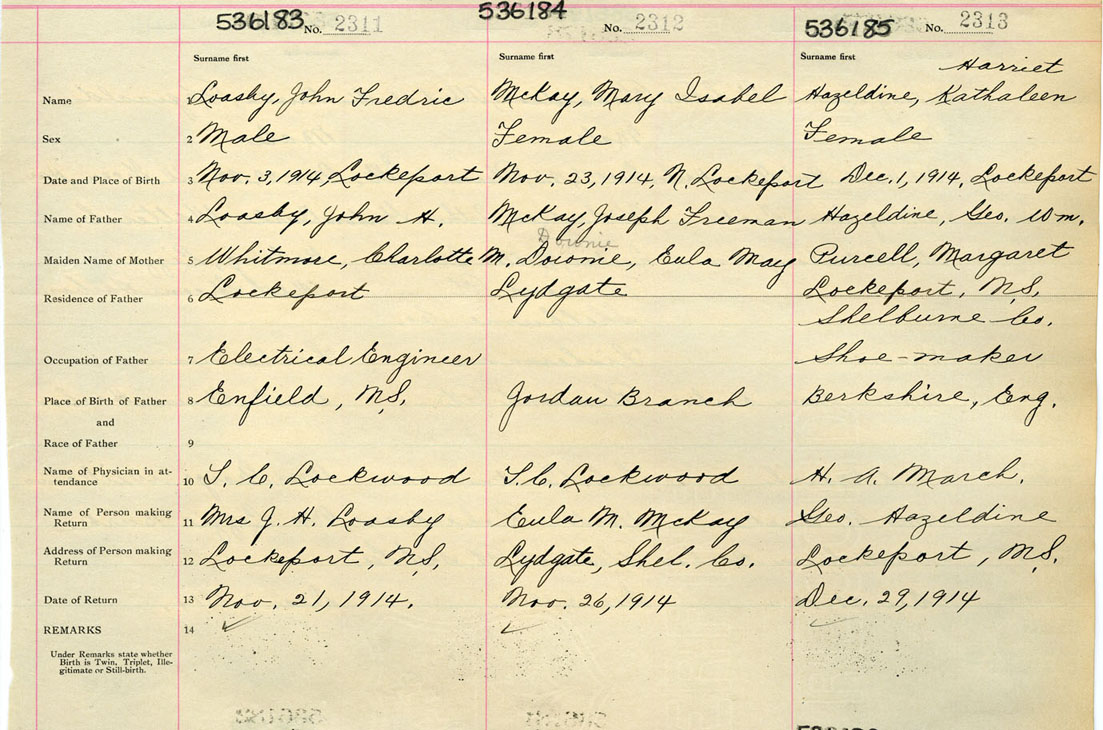 536183 No. 2311 536184 No. 2312 536185 No. 2313
Surname first Surname first Surname first
Harriet
Name 1 Loasby, John Fredric McKay, Mary Isabel Hazeldine, Kathaleen
Sex 2 Male Female Female
Date and Place of Birth 3 Nov. 3, 1914, Lockeport Nov. 23, 1914, N. Lockeport Dec. 1, 1914, Lockeport
Name of Father 4 Loasby, John H. McKay, Joseph Freeman Hazeldine, Geo. Wm.
Downie
Maiden Name of Mother 5 Whitmore, Charlotte M. Downie, Eula May Purcell, Margaret
Residence of Father 6 Lockeport Lydgate Lockeport, N.S.
Shelburne Co.
Occupation of Father 7 Electrical Engineer Shoe-maker
Place of Birth of Father 8 Enfield, N.S. Jordan Branch Berkshire, Eng.
and
Race of Father 9
Name of Physician in at-
tendance 10 S. C. Lockwood S.C. Lockwood H. A. March.
Name of Person making
Return 11 Mrs J. H. Loasby Eula M. McKay Geo. Hazeldine
Address of Person making
Return 12 Lockeport, N.S. Lydgate, Shel. Co. Lockeport, N.S.
Date of Return 13 Nov. 21, 1914. Nov. 26, 1914 Dec. 29, 1914
REMARKS 14
Under Remarks state whether
Birth is Twin, Triplet, Ille-
gitimate or Still-birth.